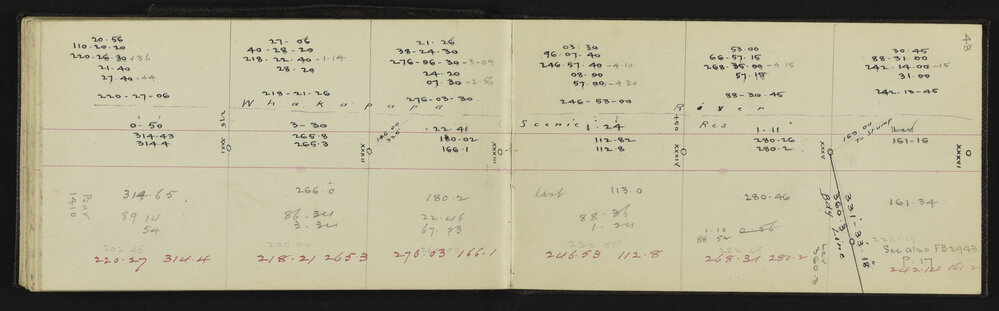 43
20.56
110.20.20
220.26.30 +36
21.40
27.40 -44
220-27-06
27.06
40-28-20
218.22.40 -1.14
28.20
218-21-26
21.26
38-24-30
276-06-30 -3-04
24-20
07.30 -2.56
276-03-30
03.30
96-07-40
246.57.40 -4.10
08.00
57.00 -4.30
246-53-00
53.00
66-57.15
268-35-00 -4.15
57.15
88-30-45
30.45
88-31-00
242-14-00 -15
31.00
242-13-45
Whakapapa River
Scenic Res
0-50
314.43
314.4
275
XXXI
3-30
265.8
265.3
XXXII
146.00
325
22-41
180-02
166.1
XXXIII
1-24
112-82
112-8
450
XXXIV
1-11
280-26
280.2
XXXV
169.00
To Stump
161-16
XXXVI
314.65
89 14
54
266.0
86.34
3.34
180.2
22-46
67.33
last
113.0
88.36
1.24
280-46
1-10
161.34
331-33-18
360.3
Bdy Line
See also FB 2943
P.17
220.27 314.4
218.21 265.3
276.03 166.1
246.53 112.8
268-31 280.2
242.14 161.2